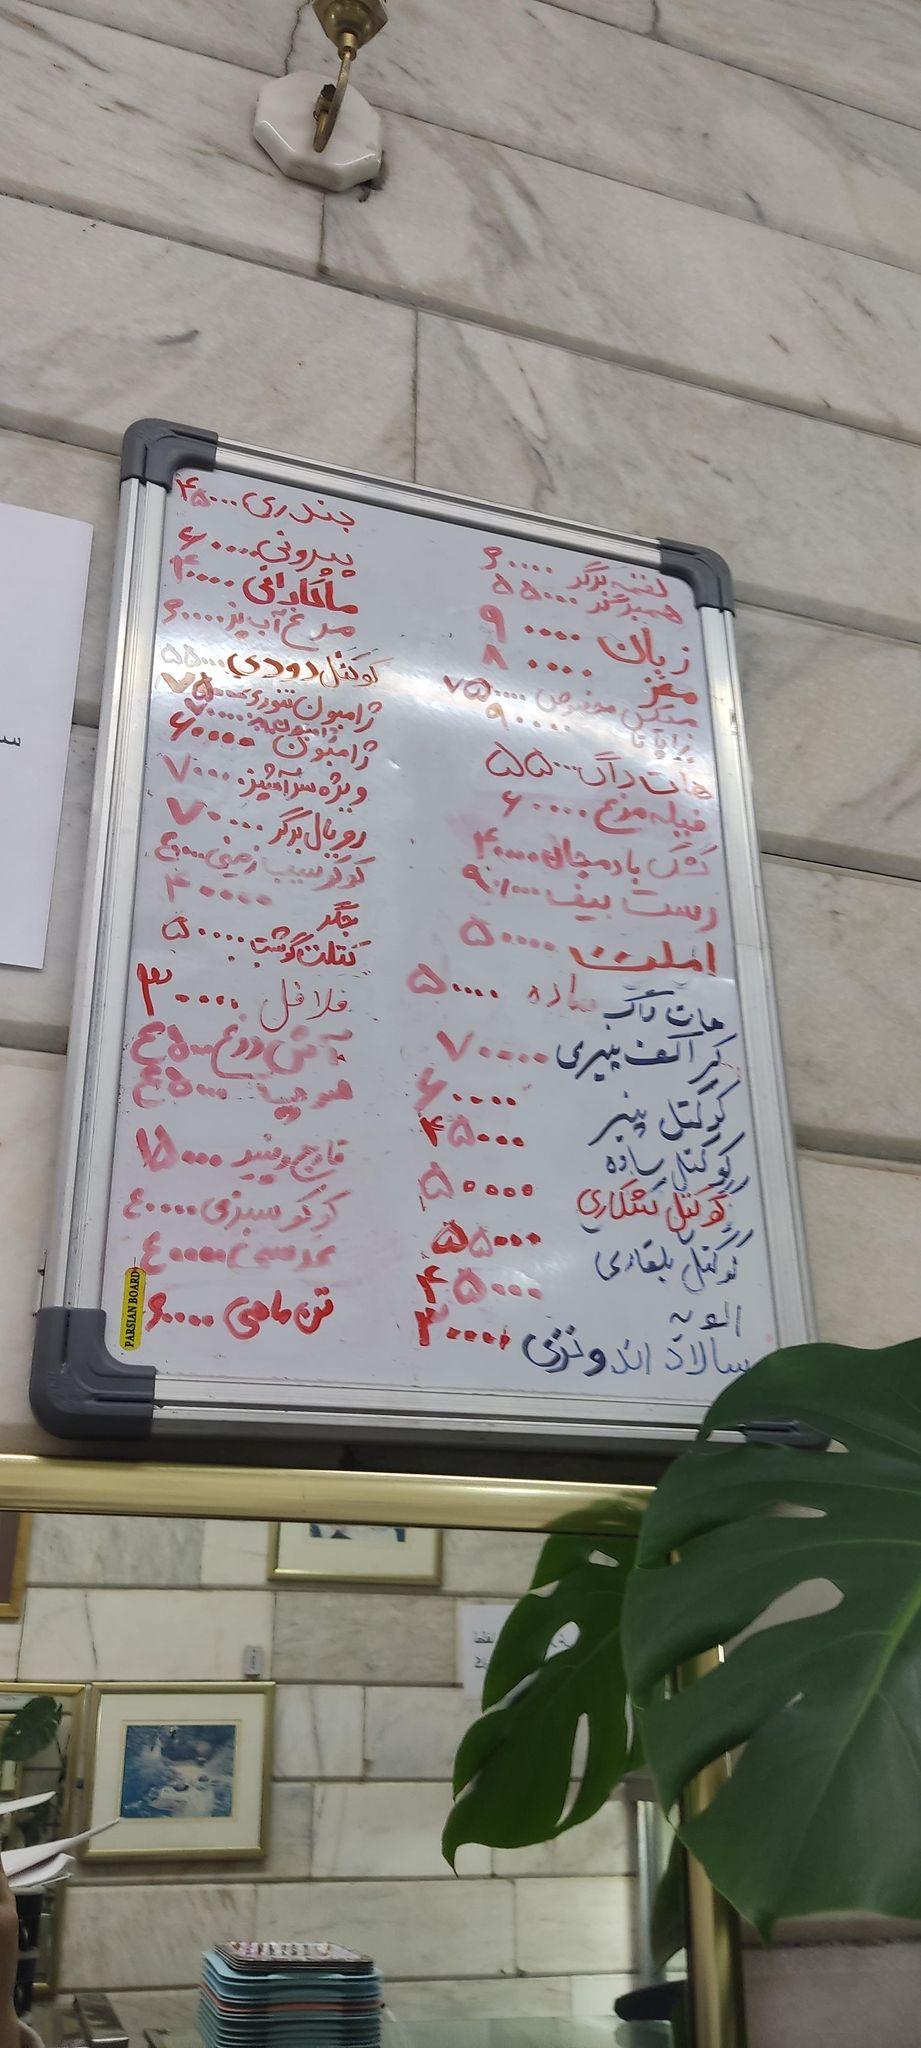 لقمه برگر ۶۰۰۰۰
همبرگر ۵۵۰۰۰
زبان ۹۰۰۰۰
مغز ۸۰۰۰۰
مخصوص ۷۵۰۰۰
۹۰۰۰۰
هات داگ ۵۵۰۰۰
فیله مرغ ۶۰۰۰۰
کشک بادمجان ۴۰۰۰۰
رست بیف ۹۰۰۰۰
املت ۵۰۰۰۰
هات داگ ساده ۵۰۰۰۰
پیری ۷۰۰۰۰
کوکتل پنیر ۶۰۰۰۰
کوکتل ساده ۴۵۰۰۰
کوکتل شکاری ۵۰۰۰۰
کوکتل بلغاری ۵۵۰۰۰
الویه ۴۵۰۰۰
سالاد اندونزی ۳۰۰۰۰
بندری ۴۵۰۰۰
پپرونی ۶۰۰۰۰
ماکارانی ۴۰۰۰۰
مرغ آب پز ۶۰۰۰۰
کوکتل دودی ۵۵۰۰۰
ژامبون تنوری ۷۵۰۰۰
ژامبون ۶۰۰۰۰
ویژه سرآشپز ۷۰۰۰۰
رویال برگر ۷۰۰۰۰
کوکو سیب زمینی ۴۰۰۰۰
جگر ۴۰۰۰۰
کتلت گوشت ۵۰۰۰۰
فلافل ۳۰۰۰۰
آش دوغ ۴۵۰۰۰
سوپ ۴۵۰۰۰
قارچ و پنیر
کوکو سبزی ۴۰۰۰۰
عدسی ۴۰۰۰۰
تن ماهی ۶۰۰۰۰
PARSIAN BOARD